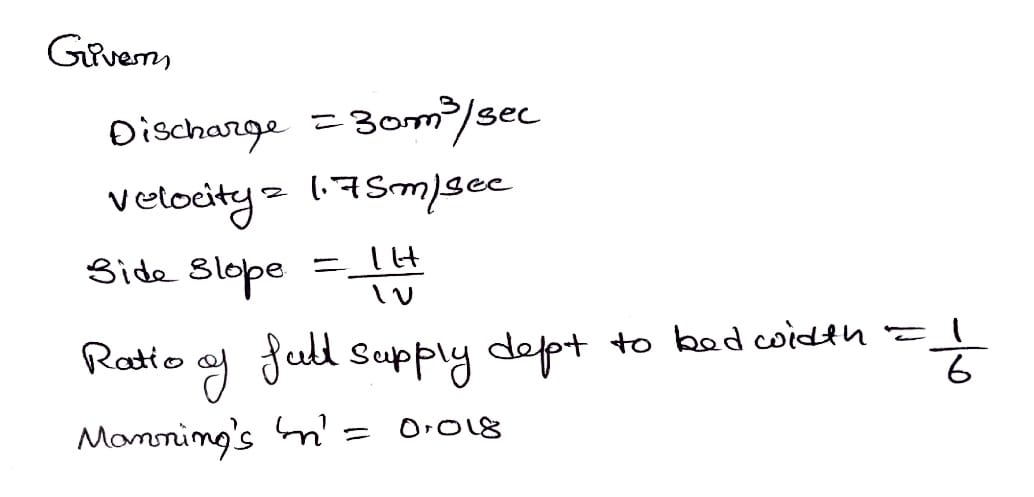 Given,
Discharge = 30m³/sec
velocity = 1.75m/sec
Side Slope = 1H/1V
Ratio of full supply dept to bed width = 1/6
Manning's 'n' = 0.018